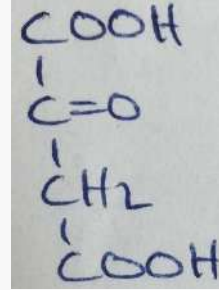 COOH
C=O
CH2
COOH